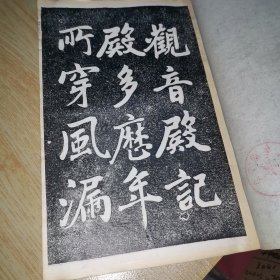 觀音殿記
殿多歷年
所穿風漏